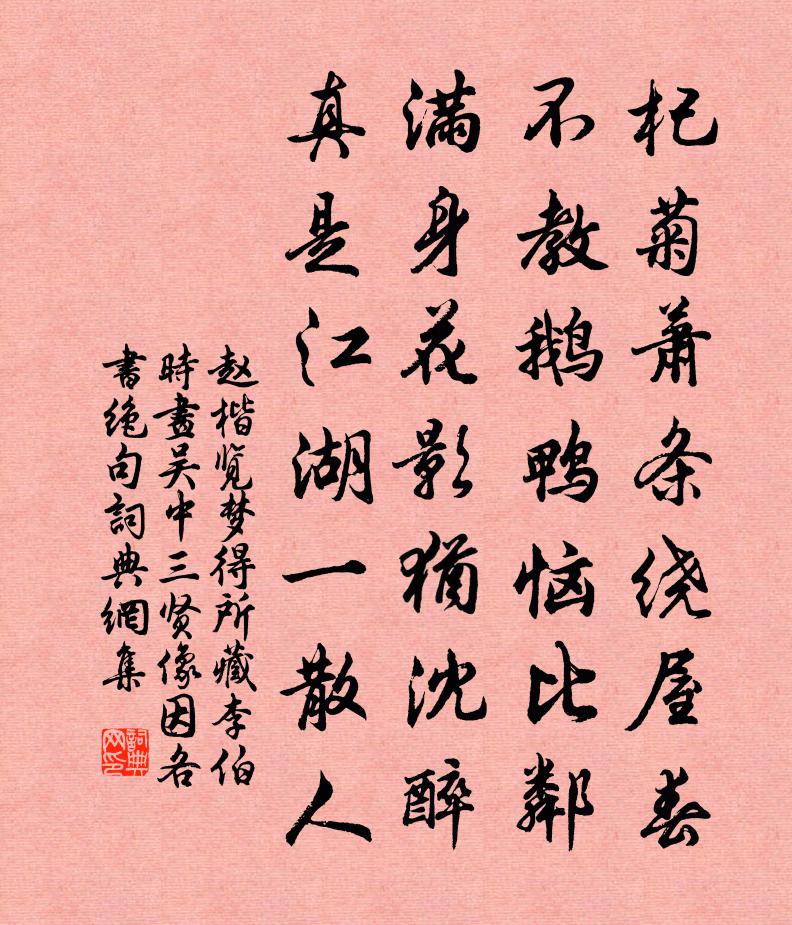 杞菊萧条绕屋春
不教鹅鸭恼比鄰
满身花影猶沈醉
真是江湖一散人
赵楷览梦得所藏李伯
時畫吴中三贤像因各
書绝句詞典網集
詞典
网印